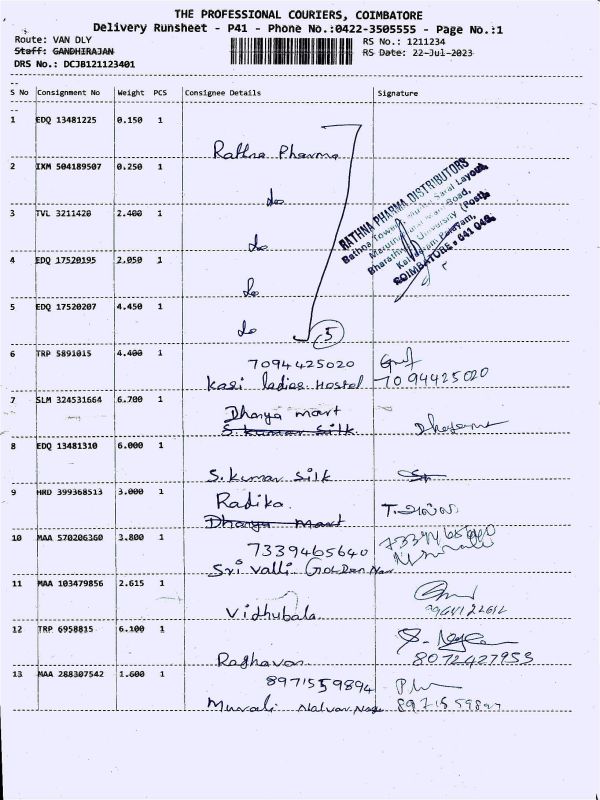 THE PROFESSIONAL COURIERS, COIMBATORE
Delivery Runsheet - P41 - Phone No.:0422-3505555 - Page No.:1
Route: VAN DLY
RS No.: 1211234
Staff: GANDHIRAJAN
RS Date: 22-Jul-2023
DRS No.: DCJB121123401
S No Consignment No Weight PCS Consignee Details Signature
1 EDQ 13481225 0.150 1
Rathna Pharma
2 IXM 504189507 0.250 1
do
3 TVL 3211420 2.400 1
do
4 EDQ 17520195 2.050 1
do
5 EDQ 17520207 4.450 1
do 5
RATHNA PHARMA DISTRIBUTORS
Rathna Towers, Layout,
Road,
Bharathiar University (Post)
COIMBATORE - 641 046.
6 TRP 5891015 4.400 1
7094425020
Kasi ladies Hostel 7094425020
7 SLM 324531664 6.700 1
Dhanya mart
S. kumar Silk
8 EDQ 13481310 6.000 1
S. kumar silk
9 HRD 399368513 3.000 1
Radika
Dhanya mart
10 MAA 570206360 3.800 1
7339465640 7339465640
Sri Valli Golden
11 MAA 103479856 2.615 1
Vidhubala
12 TRP 6958815 6.100 1
Raghavan 8072427953
13 MAA 288307542 1.600 1
8971559894
Murali